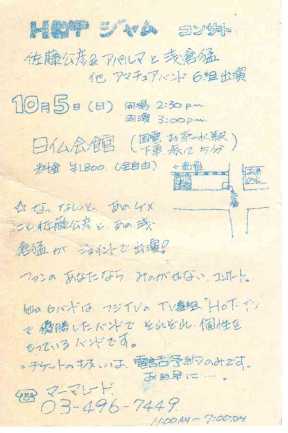 HOP ジャム コンサート
佐藤公彦&アパルマと浅倉猛
他 アマチュアバンド6組出演
10月5日(日) 開場 2:30pm
開演 3:00pm
日仏会館 (国電 お茶の水駅
下車 歩いて5分)
料金 ¥1,800 (全自由)
☆なんと、あの
佐藤公彦とあの浅
倉猛がジョイントで出演!
ファンのあなたなら みのがせない コンサート。
他の6バンドは フジTVのTV番組"HOT
で優勝したバンドで それぞれ個性を
もっているバンドです。
チケットの は、電話予約のみです。
お早目に…。
☎ マーマレード
03-496-7449
11:00AM〜7:00PM